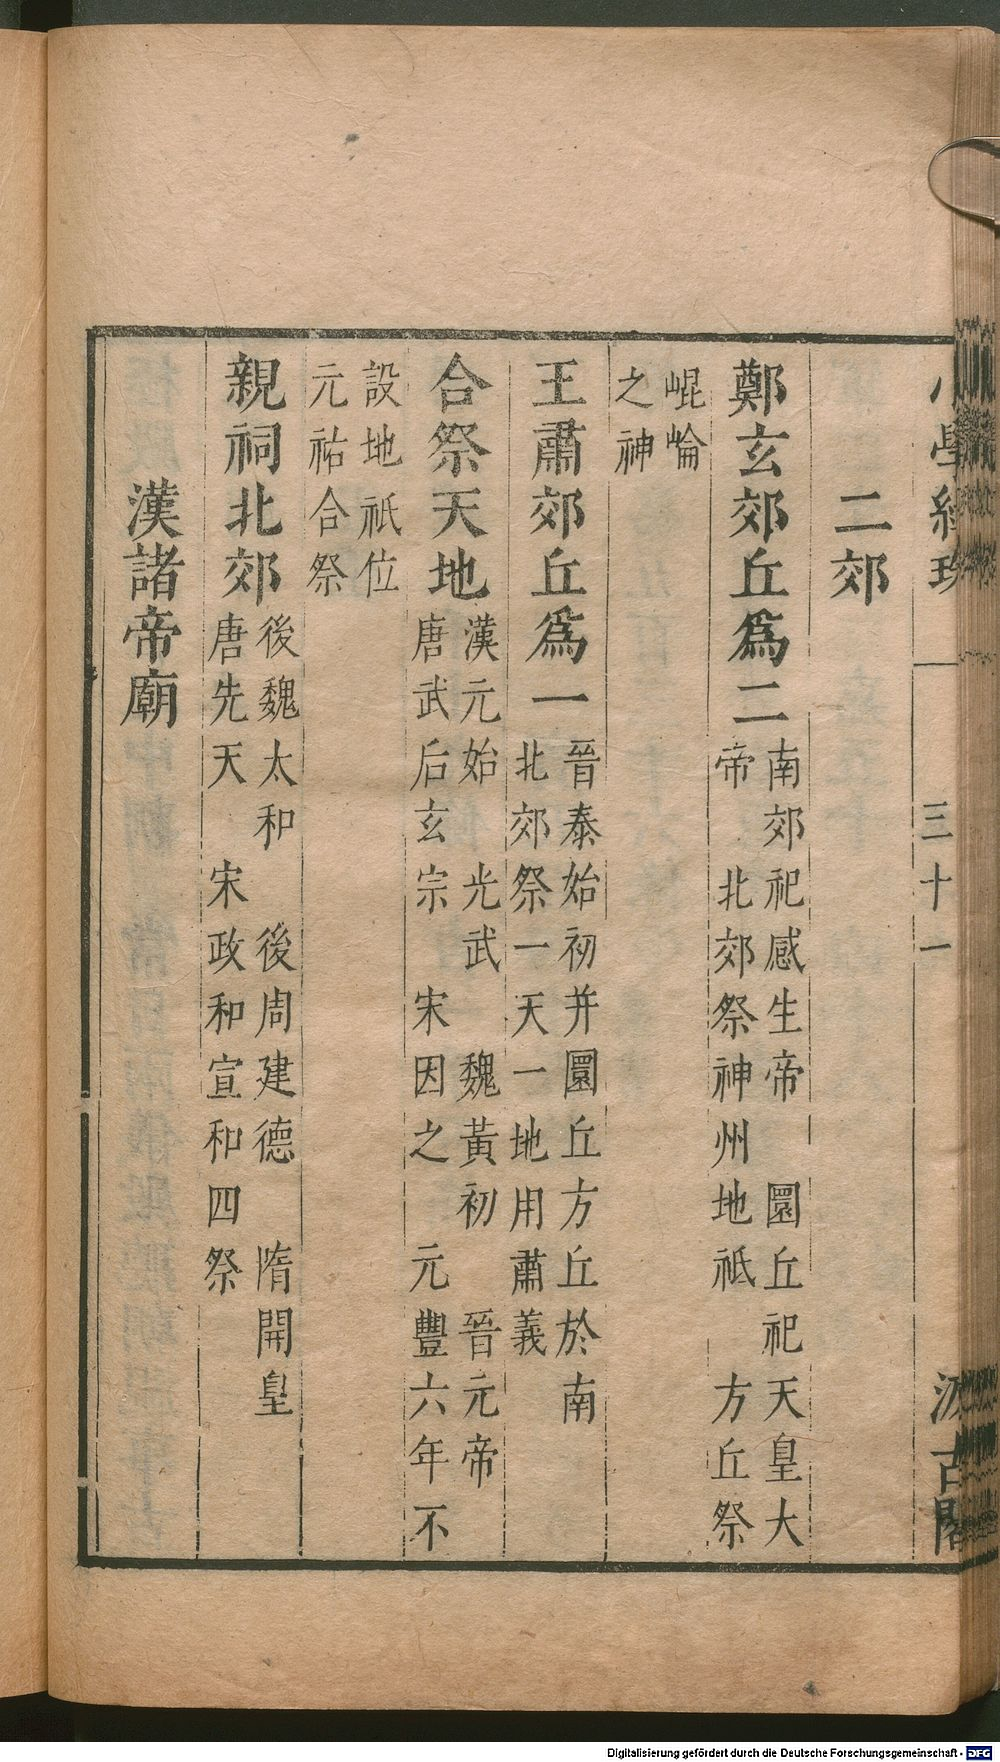 小學紺珠 三十一 汲古閣
二郊
鄭玄郊丘爲二南郊祀感生帝 圜丘祀天皇大
帝 北郊祭神州地祇 方丘祭
崐崘
之神
王肅郊丘爲一晉泰始初并圜丘方丘於南
北郊祭一天一地用肅義
合祭天地漢元始 光武 魏黃初 晉元帝
唐武后玄宗 宋因之 元豐六年不
設地祇位
元祐合祭
親祠北郊後魏太和 後周建德 隋開皇
唐先天 宋政和宣和四祭
漢諸帝廟
Digitalisierung gefördert durch die Deutsche Forschungsgemeinschaft - DFG